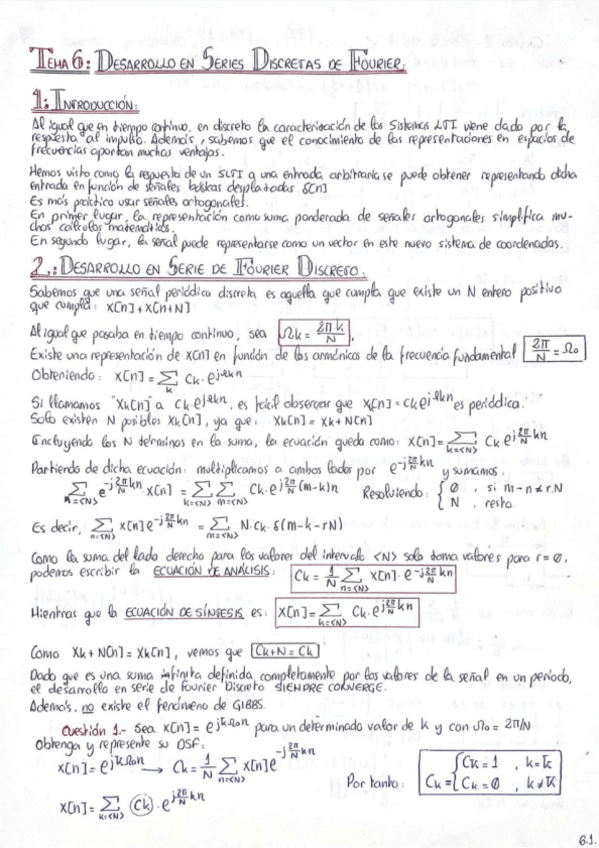 TEMA 6: DESARROLLO EN SERIES DISCRETAS DE FOURIER.
1: INTRODUCCIÓN:
Al igual que en tiempo continuo, en discreto la caracterización de los Sistemas LTI viene dado por la
respuesta al impulso. Además, sabemos que el conocimiento de las representaciones en espacios de
frecuencias aportan muchas ventajas.
Hemos visto como la respuesta de un SLTI a una entrada arbitraria se puede obtener representando dicha
entrada en función de señales básicas desplazadas δ[n]
Es más práctico usar señales ortogonales.
En primer lugar, la representación como suma ponderada de señales ortogonales simplifica mu-
chos cálculos matemáticos.
En segundo lugar, la señal puede representarse como un vector en este nuevo sistema de coordenadas.
2.: DESARROLLO EN SERIE DE FOURIER DISCRETO.
Sabemos que una señal periódica discreta es aquella que cumpla que existe un N entero positivo
que cumpla: x[n]+x[n+N]
Al igual que pasaba en tiempo continuo, sea Ωk = 2π k / N.
Existe una representación de x[n] en función de los armónicos de la frecuencia fundamental 2π/N = Ω0
Obteniendo: x[n] = Σ_k Ck·e^{jΩkn}
Si llamamos "Xk[n]" a Ck e^{jΩkn}, es fácil observar que Xk[n] = Ck e^{j2π/N kn} es periódica.
Solo existen N posibles Xk[n], ya que: Xk[n] = Xk+N[n]
Incluyendo los N términos en la suma, la ecuación queda como: x[n] = Σ_{k=<N>} Ck e^{j2π/N kn}
Partiendo de dicha ecuación: multiplicamos a ambos lados por e^{-j2π/N kn} y sumamos:
Σ_{n=<N>} e^{-j2π/N kn} x[n] = Σ_{k=<N>} Σ_{m=<N>} Ck·e^{j2π/N (m-k)n} Resolviendo: { 0, si m-n≠r.N
N, resto.
Es decir, Σ_{n=<N>} x[n] e^{-j2π/N kn} = Σ_{m=<N>} N·Ck·δ(m-k-rN)
Como la suma del lado derecho para los valores del intervalo <N> solo toma valores para r=0,
podemos escribir la ECUACIÓN DE ANÁLISIS: Ck = 1/N Σ_{n=<N>} x[n]·e^{-j2π/N kn}
Mientras que la ECUACIÓN DE SÍNTESIS es: x[n] = Σ_{k=<N>} Ck·e^{j2π/N kn}
Como Xk+N[n] = Xk[n], vemos que Ck+N = Ck
Dado que es una suma infinita definida completamente por los valores de la señal en un período,
el desarrollo en serie de Fourier Discreto SIEMPRE CONVERGE.
Además, no existe el fenómeno de GIBBS.
Cuestión 1.- Sea x[n] = e^{jkΩ0n} para un determinado valor de k y con Ω0 = 2π/N
Obtenga y represente su DSF:
x[n] = e^{jkΩ0n} → Ck = 1/N Σ_{n=<N>} x[n] e^{-j2π/N kn}
Por tanto: Ck = { Ck = 1, k = k̄
Ck = 0, k ≠ k̄
x[n] = Σ_{k=<N>} Ck · e^{j2π/N kn}
6.1.